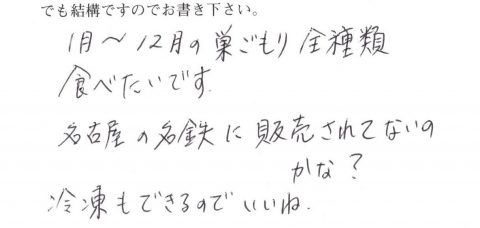 でも結構ですのでお書き下さい。
1月～12月の巣ごもり全種類
食べたいです.
名古屋の名鉄に販売されてないの
かな？
冷凍もできるのでいいね.